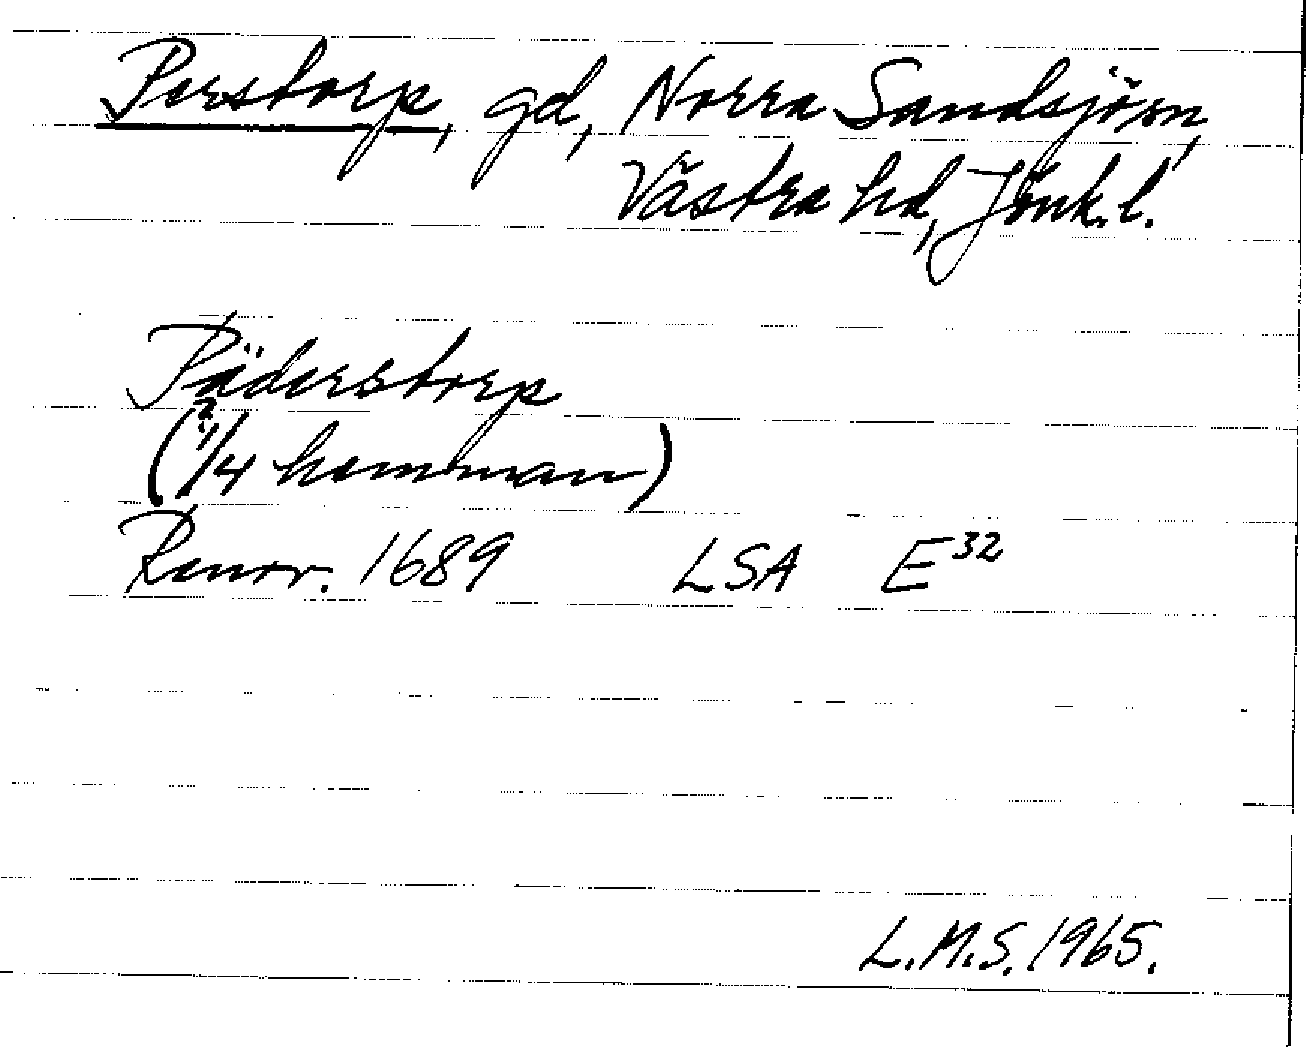 Perstorp, gd, Norra Sandsjön,
Västra hd, Jönk. l.
Päderstorp
(1/4 hemman)
Renov. 1689 LSA E32
L.M.S. 1965.